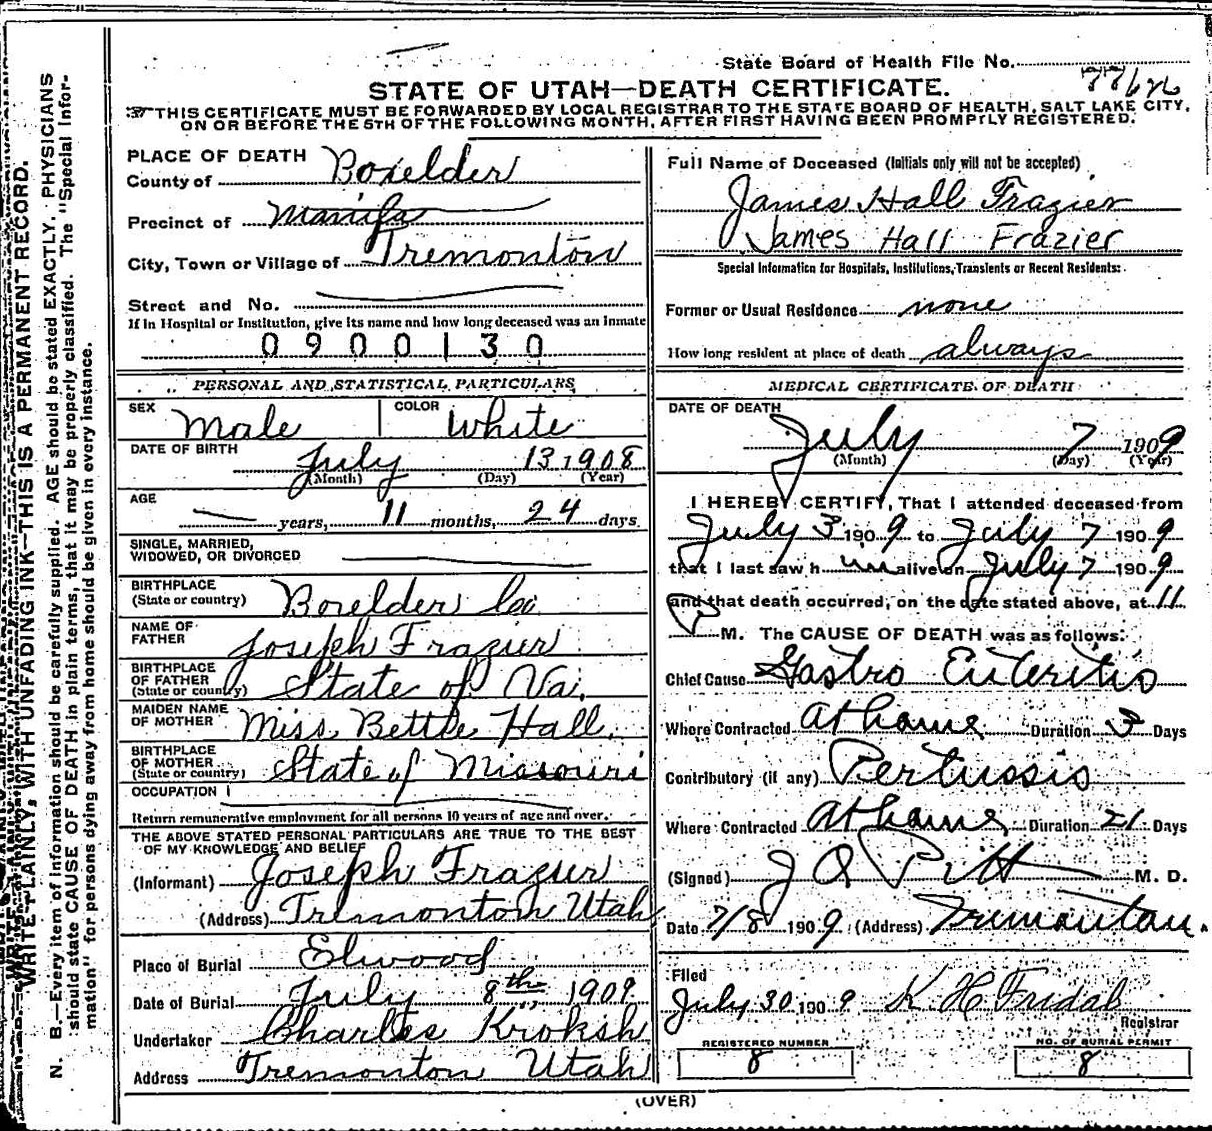 State Board of Health File No.
STATE OF UTAH—DEATH CERTIFICATE.
THIS CERTIFICATE MUST BE FORWARDED BY LOCAL REGISTRAR TO THE STATE BOARD OF HEALTH, SALT LAKE CITY,
ON OR BEFORE THE 5TH OF THE FOLLOWING MONTH, AFTER FIRST HAVING BEEN PROMPTLY REGISTERED.
WRITE PLAINLY, WITH UNFADING INK—THIS IS A PERMANENT RECORD.
N. B.—Every item of information should be carefully supplied. AGE should be stated EXACTLY. PHYSICIANS
should state CAUSE OF DEATH in plain terms, that it may be properly classified. The "Special Infor-
mation" for persons dying away from home should be given in every instance.
PLACE OF DEATH
County of Boxelder
Precinct of
City, Town or Village of Tremonton
Street and No.
If in Hospital or Institution, give its name and how long deceased was an inmate
0900130
PERSONAL AND STATISTICAL PARTICULARS
SEX Male COLOR White
DATE OF BIRTH July 13, 1908
(Month) (Day) (Year)
AGE
— years, 11 months, 24 days
SINGLE, MARRIED,
WIDOWED, OR DIVORCED
BIRTHPLACE
(State or country) Boxelder Co
NAME OF
FATHER Joseph Frazier
BIRTHPLACE
OF FATHER
(State or country) State of Va.
MAIDEN NAME
OF MOTHER Miss Bettie Hall
BIRTHPLACE
OF MOTHER
(State or country) State of Missouri
OCCUPATION
Return remunerative employment for all persons 10 years of age and over.
THE ABOVE STATED PERSONAL PARTICULARS ARE TRUE TO THE BEST
OF MY KNOWLEDGE AND BELIEF
(Informant) Joseph Frazier
(Address) Tremonton Utah
Place of Burial Elwood
Date of Burial July 8th 1909
Undertaker Charles
Address Tremonton Utah
Full Name of Deceased (Initials only will not be accepted)
James Hall Frazier
James Hall Frazier
Special Information for Hospitals, Institutions, Transients or Recent Residents:
Former or Usual Residence none
How long resident at place of death always
MEDICAL CERTIFICATE OF DEATH
DATE OF DEATH
July 7 1909
(Month) (Day) (Year)
I HEREBY CERTIFY, That I attended deceased from
July 3 1909 to July 7 1909
that I last saw him alive on July 7 1909
and that death occurred, on the date stated above, at 11
P M. The CAUSE OF DEATH was as follows:
Chief Cause Gastro Enteritis
Where Contracted at home Duration 3 Days
Contributory (if any) Pertussis
Where Contracted at home Duration 21 Days
(Signed) M. D.
Date 7/8 1909 (Address) Tremonton.
Filed
July 30 1909 K H Fridal
Registrar
REGISTERED NUMBER
8
NO. OF BURIAL PERMIT
8
(OVER)